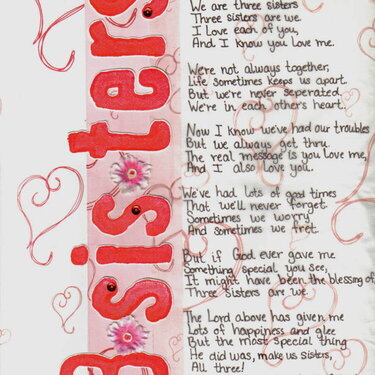 Sisters
We are three sisters
Three sisters are we.
I Love each of you,
And I know you Love me.
We're not always together,
Life sometimes keeps us apart.
But we're never seperated
We're in each other's heart.
Now I know we've had our troubles
But we always get thru.
The real message is you love me,
And I also love you.
We've had lots of good times
That we'll never forget.
Sometimes we worry
And sometimes we fret.
But if God ever gave me
Something special you see,
It might have been the blessing of,
Three Sisters are we.
The Lord above has given me
Lots of happiness and glee
But the most special thing
He did was, make us Sisters,
All three!